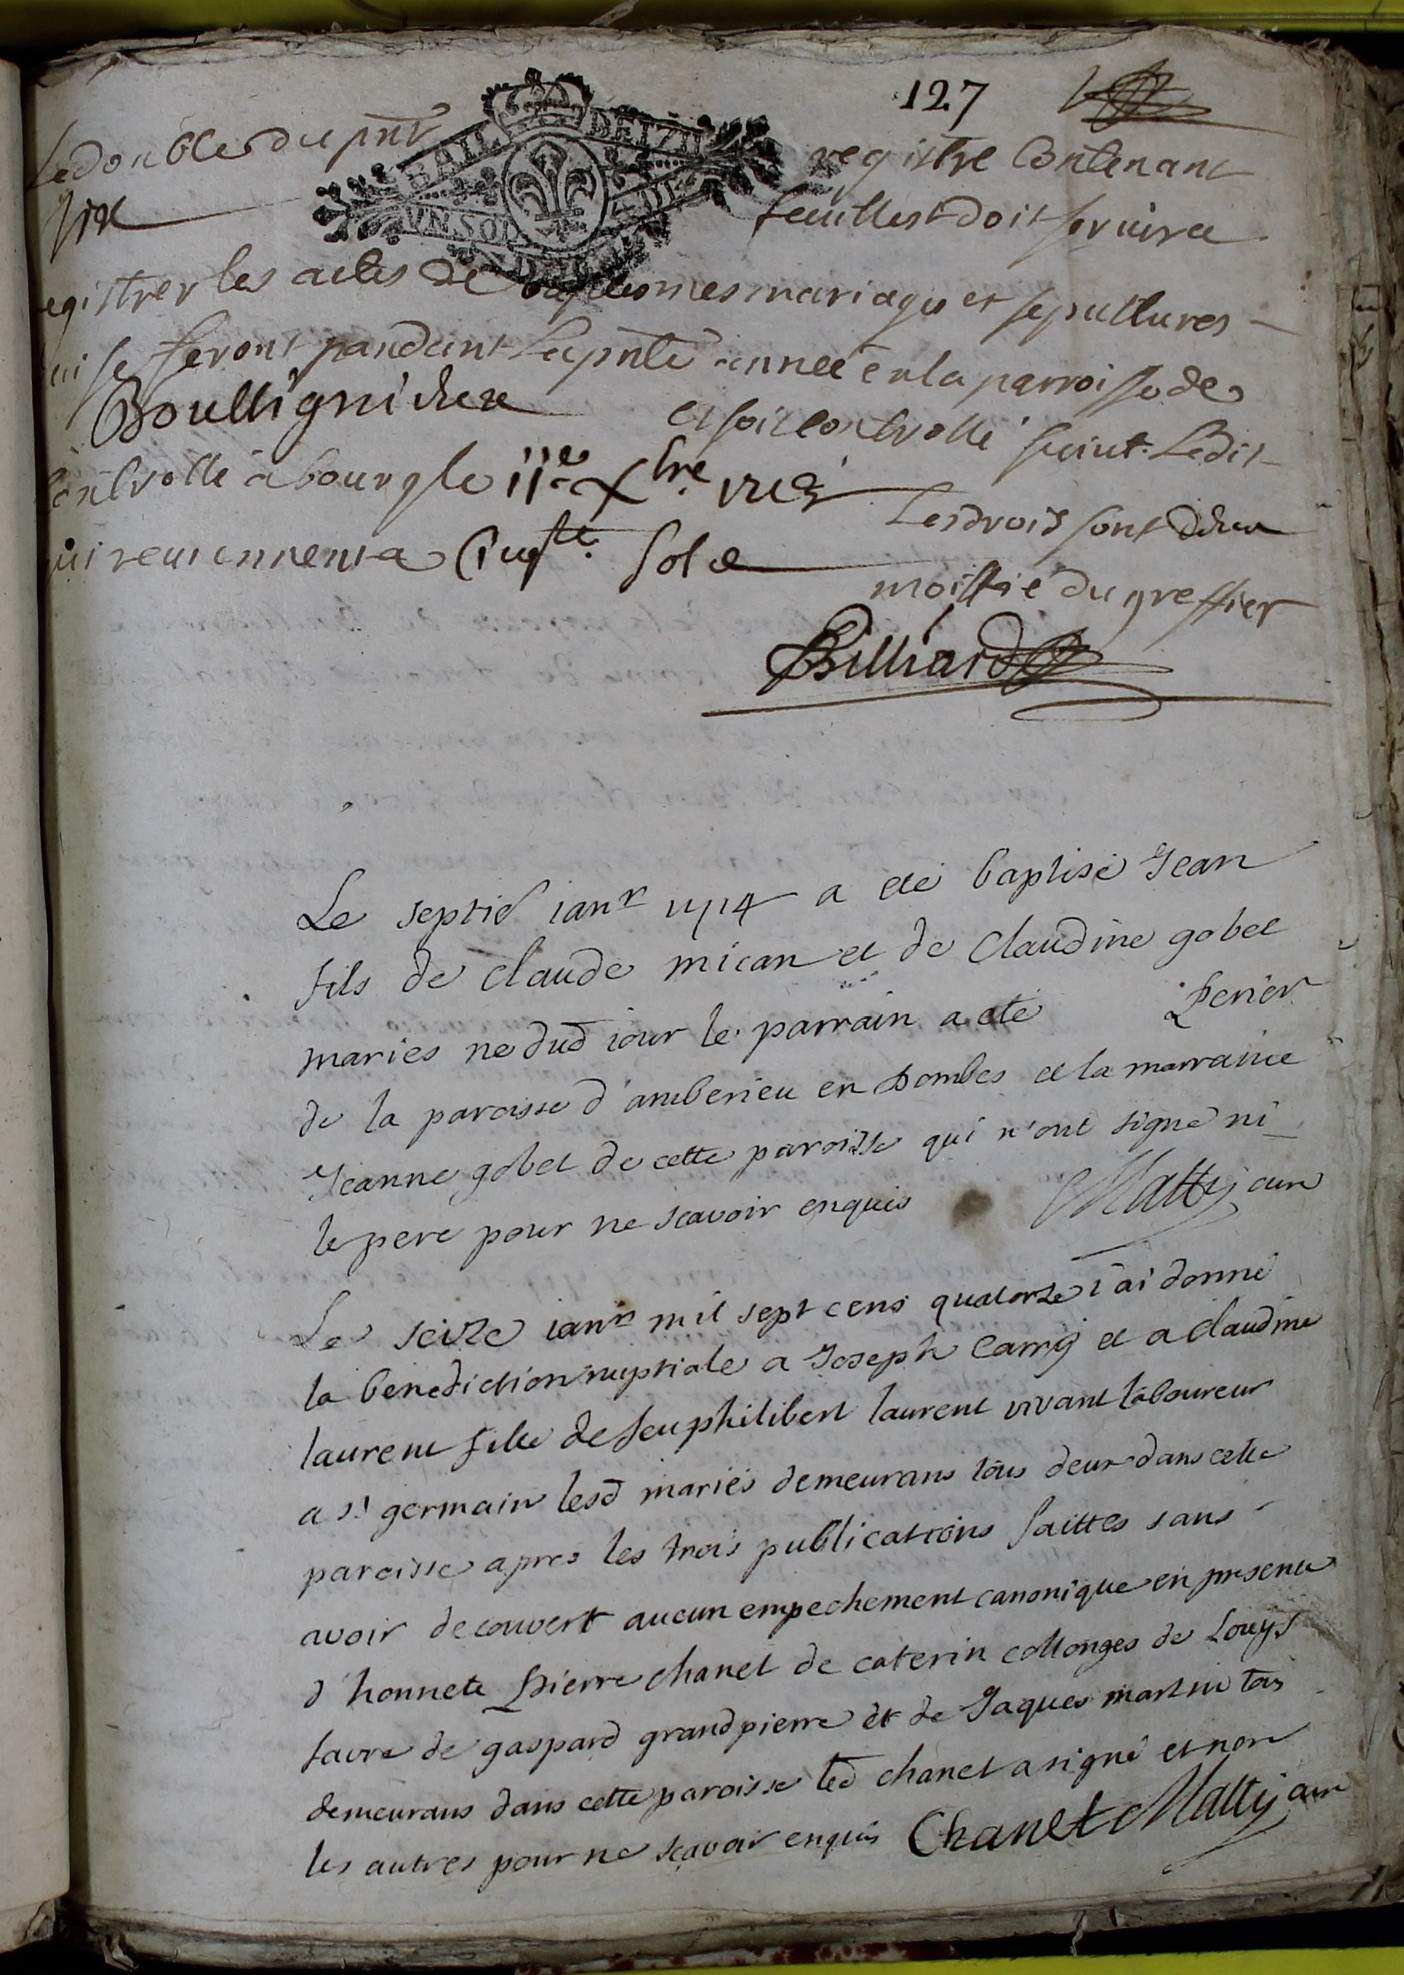 127
Le double du pnt registre contenant
six feuillest doit servir a
egistrer les actes de baptesmes mariages et sepultures
ui se feront pandant la pnte année en la parroisse de
Boullignieux et soit controllé suiut. Ledit
controllé a bourg le 11e Xbre Les drois sont deu
ui reuiennent a sols
moittié du greffier
Billiard
Le septie ianr 1714 a été baptisé Jean
fils de claude mican et de claudine gobet
mariés ne dud iour le parrain a eté Perier
de la paroisse d'amberieu en Dombes et la marraine
Jeanne gobet de cette paroisse qui n'ont signé ni
le pere pour ne scavoir enquis Matty cur
Le seize ianr mil sept cens quatorze i'ai donné
la benediction nuptiale a Joseph Carry et a claudine
laurent fille de feu philibert laurent vivant laboureur
a st germain lesd mariés demeurans tous deux dans cette
paroisse apres les trois publications faittes sans
avoir decouvert aucun empechement canonique en presence
d'honnete Pierre chanet de caterin collonges de Louys
favre de gaspard grandpierre et de Jaques martin tous
demeurans dans cette paroisse led chanet a signé et non
les autres pour ne scavoir enquis Chanet Matty cur